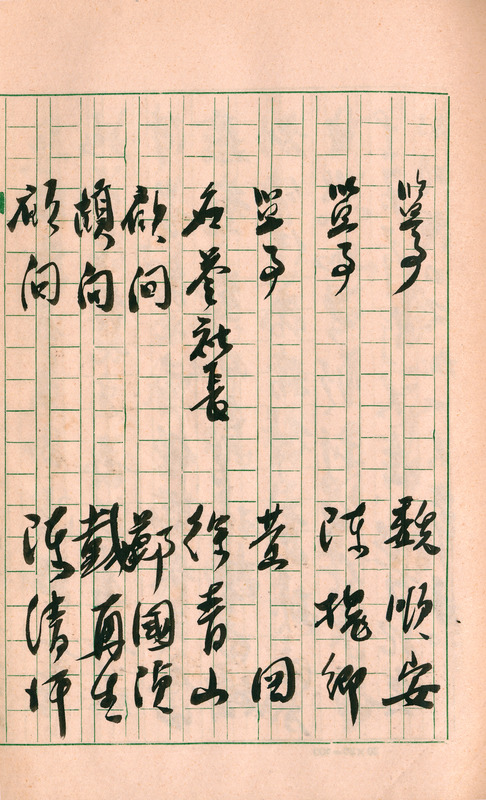 監事 魏順安
監事 陳槐卿
監事 黃
名譽社長 徐青山
顧問 鄭國湞
顧問 戴真生
顧問 陳清坪